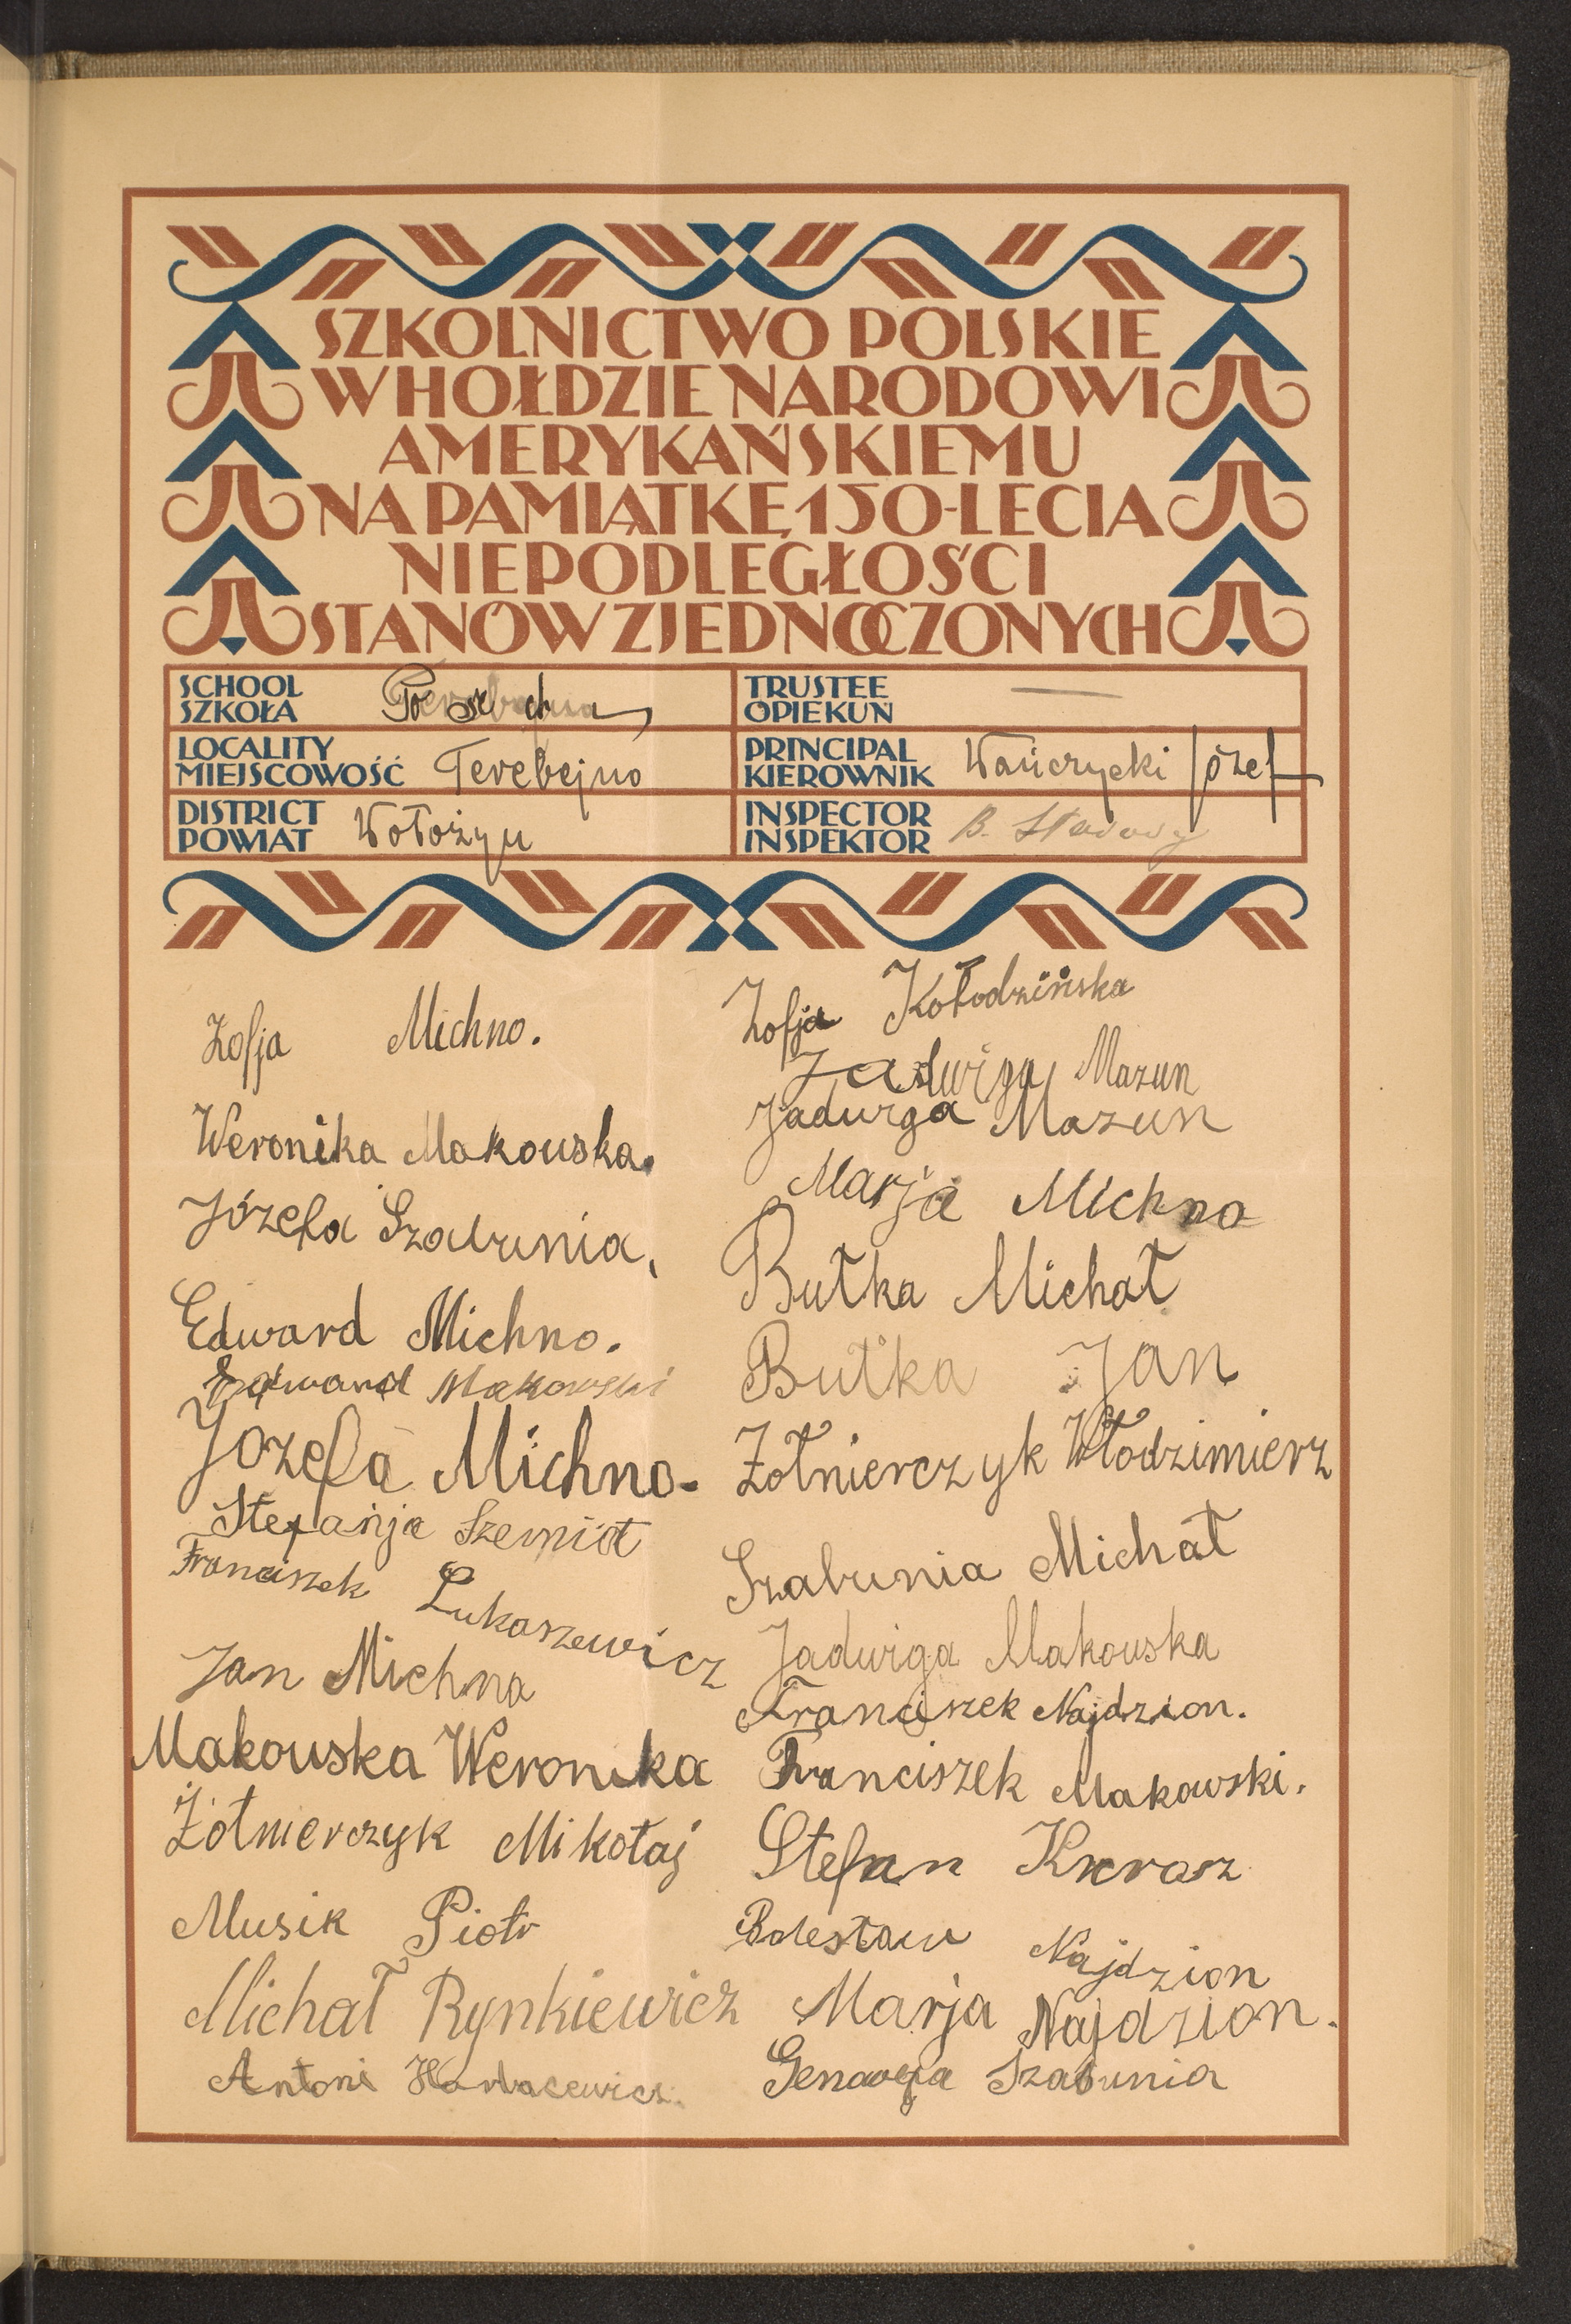 SZKOLNICTWO POLSKIE
W HOŁDZIE NARODOWI
AMERYKAŃSKIEMU
NA PAMIĄTKĘ 150-LECIA
NIEPODLEGŁOŚCI
STANÓW ZJEDNOCZONYCH
SCHOOL
SZKOŁA
TRUSTEE
OPIEKUN
—
LOCALITY
MIEJSCOWOŚĆ Terebejno
PRINCIPAL
KIEROWNIK Wańczycki Józef
DISTRICT
POWIAT Wołożyn
INSPECTOR
INSPEKTOR B.
Zofja Michno.
Weronika Makouska.
Józefa Szabunia,
Edward Michno.
Edward Makowski
Józefa Michno.
Stefanja
Franciszek Łukaszewicz
Jan Michno
Makouska Weronika
Żołnierczyk Mikołaj
Musik Piotr
Michał Rynkiewicz
Antoni
Zofja Kołodzińska
Jadwiga Mazun
Jadwiga Mazun
Marja Michno
Butka Michał
Butka Jan
Żołnierczyk Włodzimierz
Szabunia Michał
Jadwiga Makouska
Franciszek Najdzion.
Franciszek Makowski.
Stefan
Bolesław Najdzion
Marja Najdzion.
Genowefa Szabunia